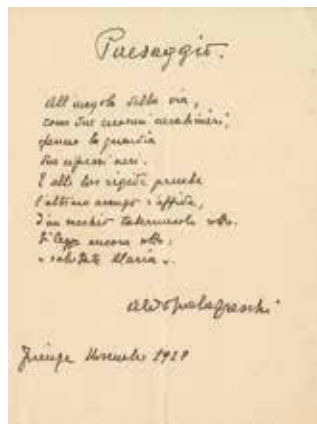 Paesaggio.
All'angolo della via,
come due enormi carabinieri,
fanno la guardia
due cipressi neri.
E alle lor rigide
l'ultimo avanzo s'affida,
d'un vecchio tabernacolo rotto.
Si legge ancora sotto:
« salutate Maria ».
Aldo Palazzeschi
Firenze Novembre